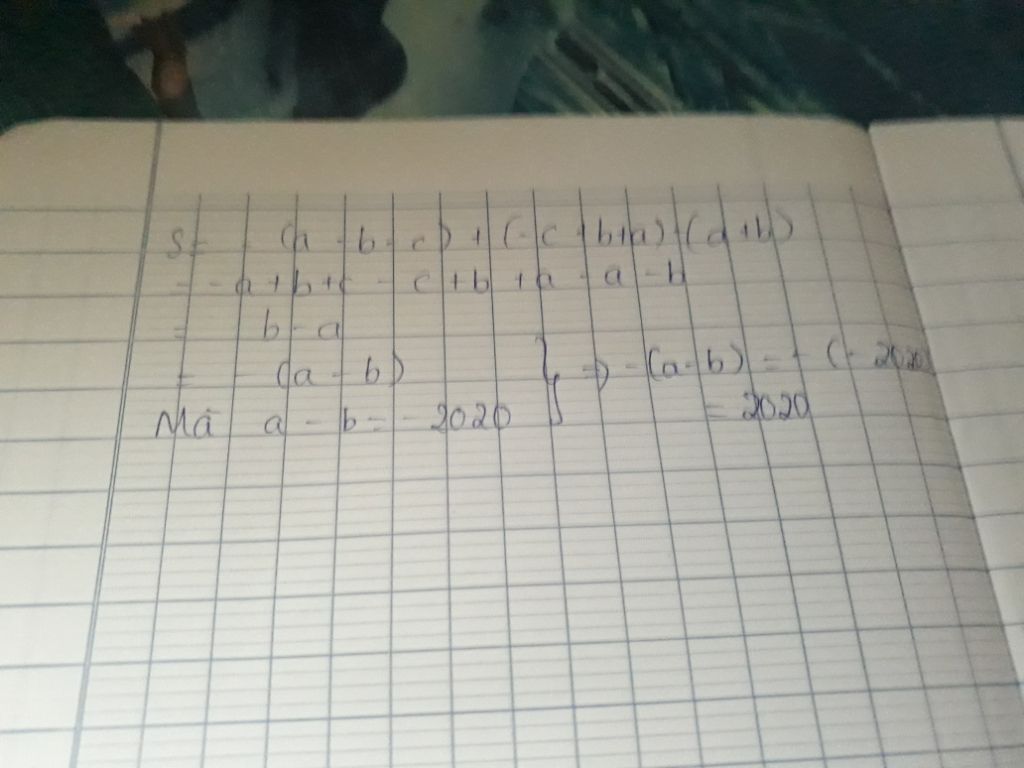 S = - (a - b - c) + (- c + b + a) - (a + b)
= - a + b + c - c + b + a - a - b
= b - a
= - (a - b) } => - (a - b) = - (- 2020)
Mà a - b = - 2020 = 2020